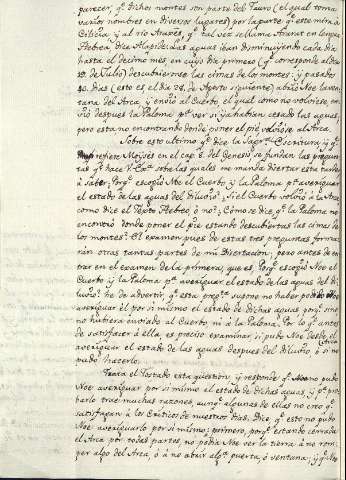 parecer, q.e dichos montes son parte del Tauro (el qual toma
varios nombres en diversos lugares) por la parte q.e este mira à
Cilicia y al rio Araxes, q.e tal vez se llama Ararat en lengua
Hebrea, dice Moyses las aguas iban disminuyendo cada dia
hasta el decimo mes, en cuyo dia primero (q.e corresponde al dia
de Julio) descubrieronse las cimas de los montes: y pasados
40. dias (esto es el dia 28. de Agosto siguiente) abriò Noe la ven-
tana del Arca, y enviò al Cuervo el qual como no volviese, en-
viò despues la Paloma p.a ver si yà habian cesado las aguas,
pero esta no encontrando donde poner el pie volviose al Arca.
Sobre esto ultimo q.e dice la Sag.da Escritura y q.e
refiere Moysès en el cap. 8. del Genesis se fundan las pregun-
tas q.e hace V. sobre las quales me manda disertar esta tarde
à saber; Porq.e escogiò Noe el Cuervo y la Paloma p.a averiguar
el estado de las aguas del diluvio? Si el Cuervo volviò à la Arca
como dice el Texto Hebreo ò no?; Còmo se dice q.e la Paloma no
encontrò donde poner el pie estando descubiertas las cimas de
los montes? El examen pues de estas tres preguntas forma-
ràn otras tantas partes de mi Disertacion; pero antes de en-
trar en el examen de la primera, que es, Porq.e escogiò Noe el
Cuervo y la Paloma p.a averiguar el estado de las aguas del di-
luvio? he de advertir, q.e esta preg.ta supone no haber podido Noe
averiguar èl por si mismo el estado de dichas aguas porq.e sino
no hubiera enviado al Cuervo ni à la Paloma. Por lo q.e antes
de satisfacer à ella, es preciso examinar si pudo Noe desde el Arca
averiguar el estado de las aguas despues del diluvio, ò si no
pudo hacerlo.
Trata el Tostado esta question, y responde q.e no pudo
Noe averiguar por si mismo el estado de dichas aguas, y q.e pro-
barlo trae muchas razones, aunq.e algunas de ellas no creo q.e
satisfagan à los Criticos de nuestros dias. Dice, q.e esto no pudo
Noe averiguarlo por si mismo; primero, porq.e estando cerrada
el Arca por todas partes, no podia Noe ver la tierra à no rom-
per algo del Arca, ò à no abrir alg.a puerta ò ventana; y q.e No-